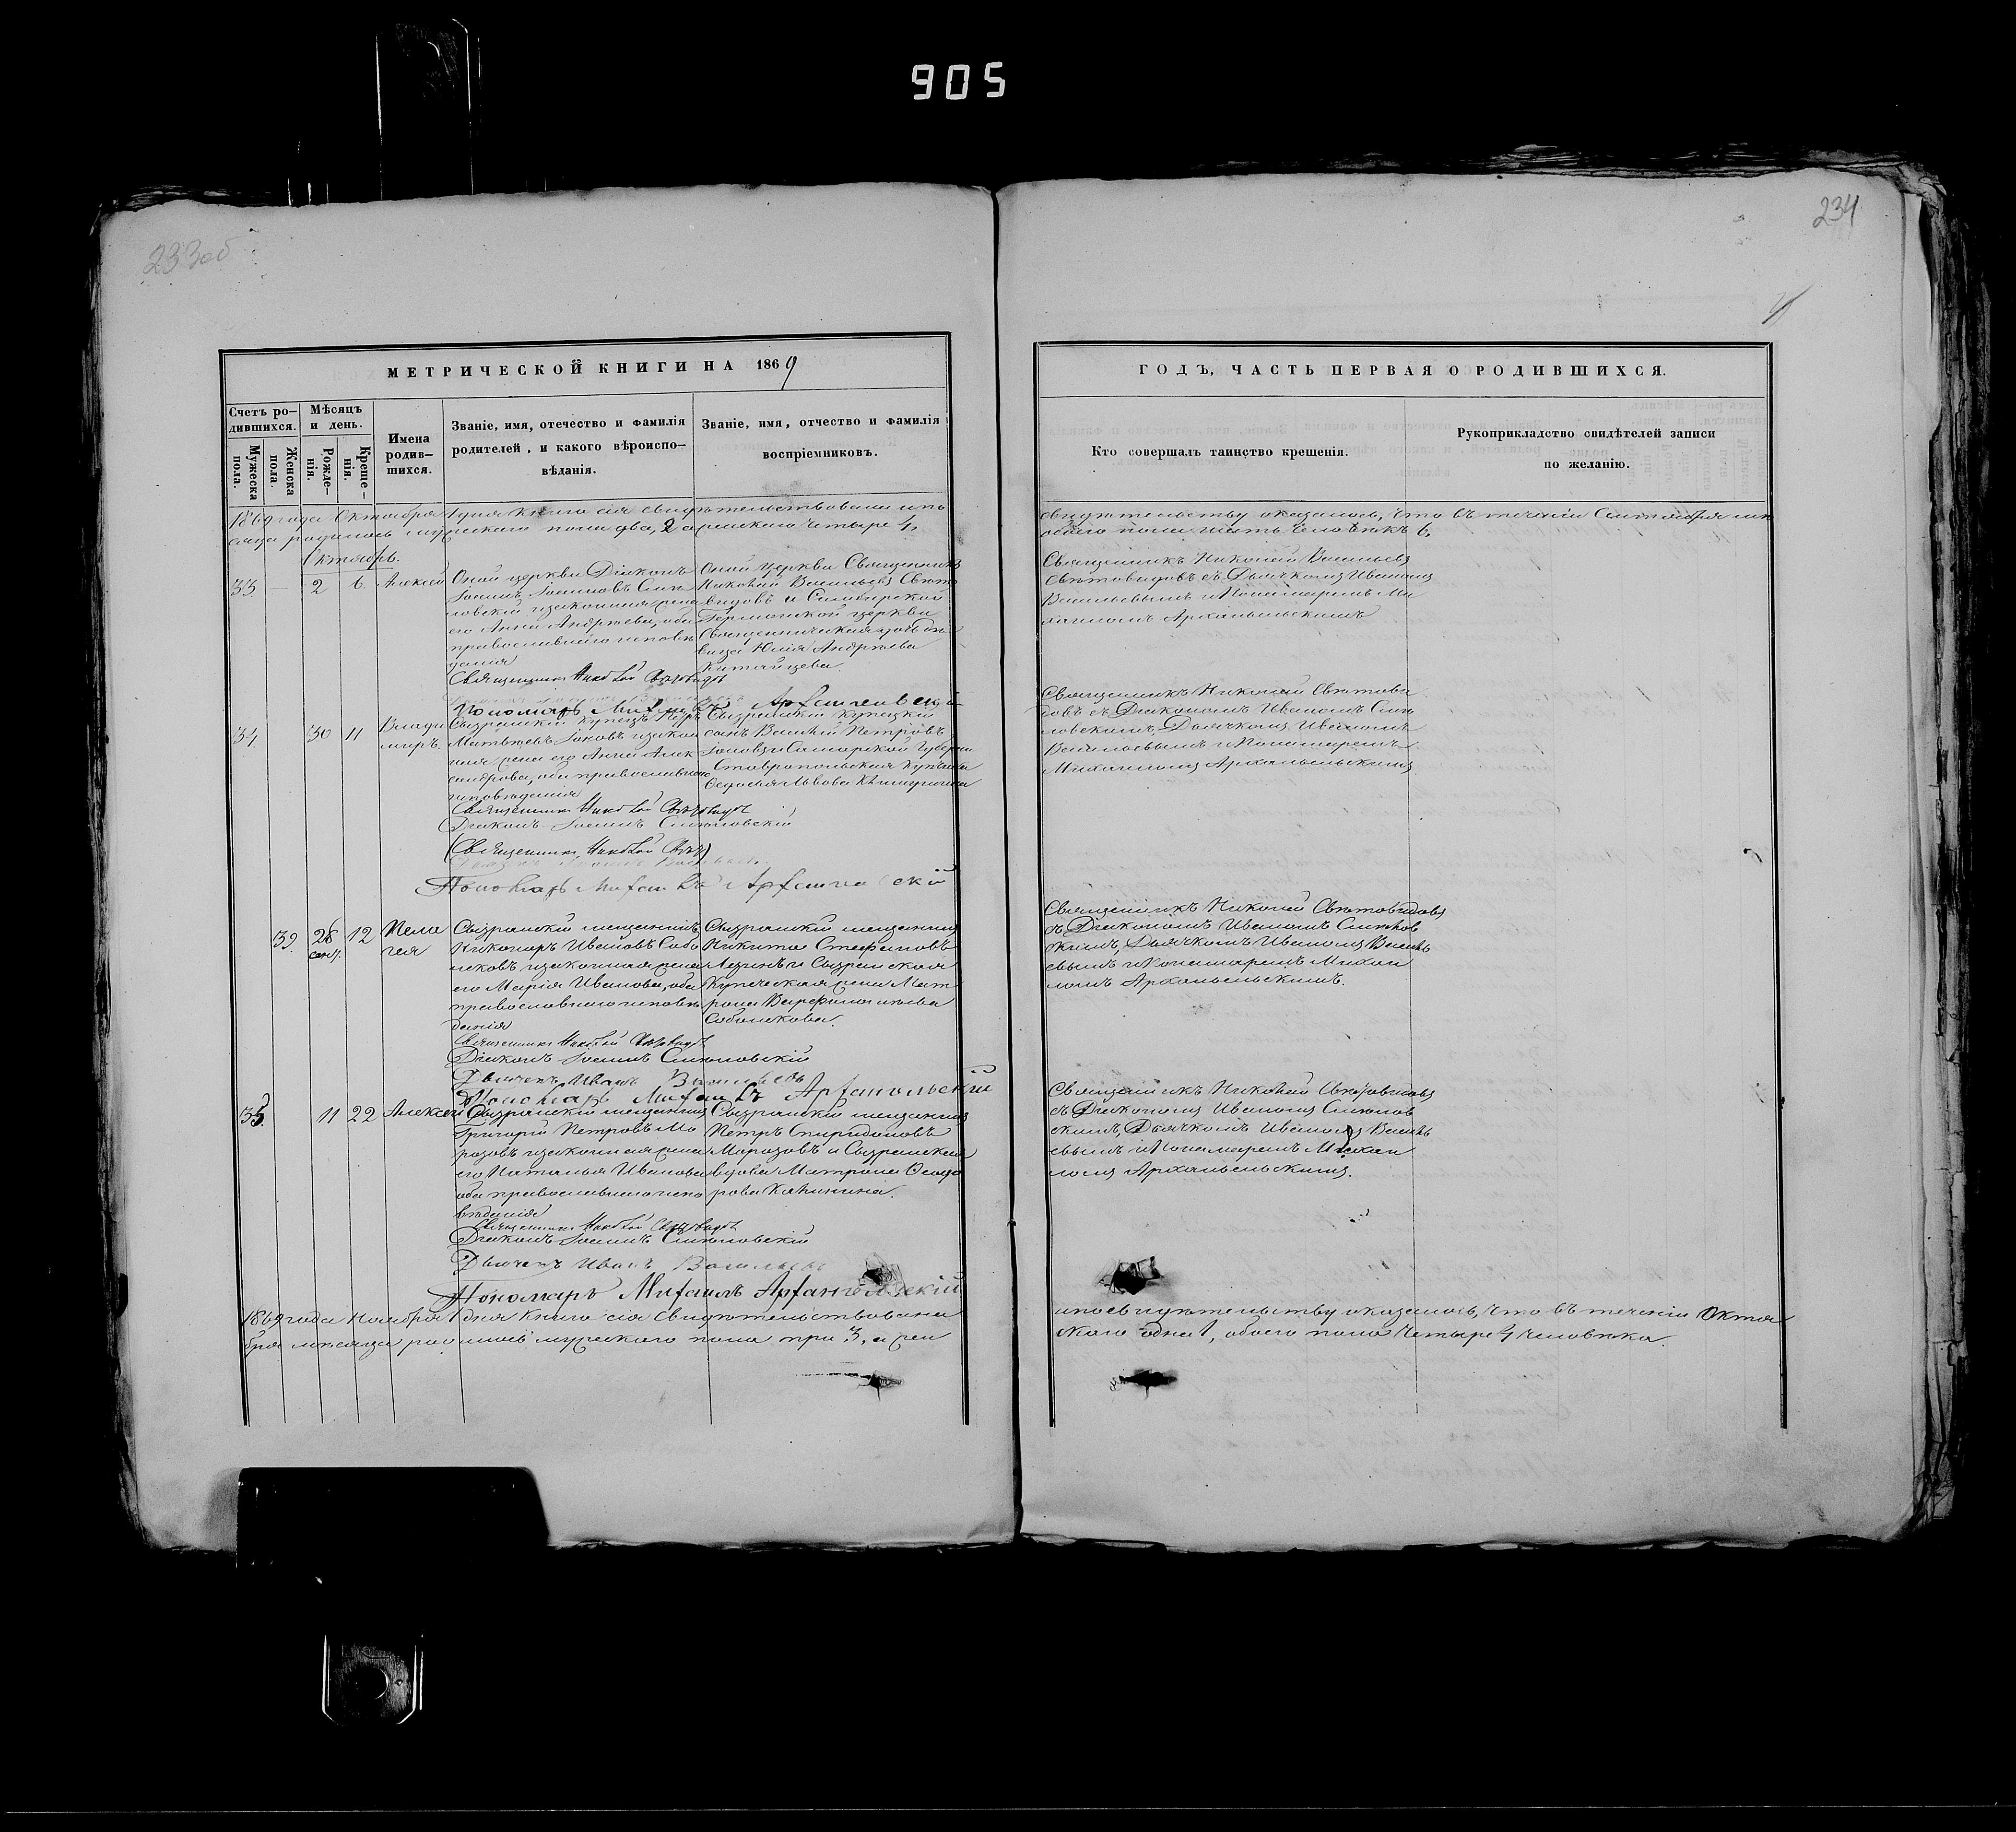 905
233 об
234
МЕТРИЧЕСКОЙ КНИГИ НА 1869
ГОДЪ, ЧАСТЬ ПЕРВАЯ О РОДИВШИХСЯ.
Счетъ ро-
дившихся.
Мужеска
пола.
Женска
пола.
Мѣсяцъ
и день.
Рожде-
нія.
Креще-
нія.
Имена
родив-
шихся.
Званіе, имя, отечество и фамилія
родителей, и какого вѣроиспо-
вѣданія.
Званіе, имя, отчество и фамилія
воспріемниковъ.
Кто совершалъ таинство крещенія.
Рукоприкладство свидѣтелей записи
по желанію.
1869 года Октября 1 дня книга сія свидѣтельствована и по
свидѣтельству оказалось, что въ теченіи Сентября мѣ
сяца родилось мужескаго пола два, 2 а женскаго четыре 4,
обоего пола шесть человѣкъ 6,
Октябрь.
33 — 2 6 Алексей
Оной церкви Діаконъ
Іоаннъ Іоанновъ
законная жена
его Анна Андрѣева, оба
православнаго исповѣ
данія
Оной церкви Священникъ
Николай Васильевъ Свѣто
видовъ и Симбирской
церкви
Священническая
вица Юлія Андрѣева
Китайцева.
Священникъ Николай Васильевъ
Свѣтовидовъ съ Дьячкомъ Иваномъ
Васильевымъ и Пономаремъ Ми
хаиломъ Архангельскимъ
Священникъ Николай Свѣтовидовъ
Пономарь Михаилъ Архангельскій
34 30 11 Влади
миръ
Сызранскій купецъ Петръ
Матвѣевъ законная
жена его Анна Алек
сандрова, оба православнаго
исповѣданія
Сызранскій купецкій
сынъ Василій Петровъ
и Самарской Губерніи
Ставропольская купчиха
Львова
Священникъ Николай Свѣтови
довъ съ Діакономъ Иваномъ
Дьячкомъ Иваномъ
Васильевымъ и Пономаремъ
Михаиломъ Архангельскимъ
Священникъ Николай Свѣтовидовъ
Діаконъ Іоаннъ
(Священникъ Николай Свѣт)
Пономарь Михаилъ Архангельскій
39. 26 12 Пела
сент. гея
Сызранскій мещанинъ
Никаноръ Ивановъ Собо
лековъ законная жена
его Марія Иванова, оба
православнаго исповѣ
данія
Сызранскій мещанинъ
Никита Стефановъ
и Сызранская
Купеческая жена Мат
рона
Соболекова.
Священникъ Николай Свѣтовидовъ
съ Діакономъ Иваномъ
Дьячкомъ Иваномъ Василь
евымъ и Пономаремъ Михаи
ломъ Архангельскимъ.
Священникъ Николай Свѣтовидовъ
Діаконъ Іоаннъ
Дьячекъ Иванъ Васильевъ
Пономарь Михаилъ Архангельскій
35. 11 22 Алексей
Сызранскій мещанинъ
Григорій Петровъ Мо
розовъ законная жена
его Наталья Иванова
оба православнаго испо
вѣданія
Сызранскій мещанинъ
Петръ Спиридоновъ
Морозовъ и Сызранская
вдова Матрона Ѳеодо
рова Калинина.
Священникъ Николай Свѣтовидовъ
съ Діакономъ Иваномъ
Дьячкомъ Иваномъ Василь
евымъ и Пономаремъ Михаи
ломъ Архангельскимъ.
Священникъ Николай Свѣтовидовъ
Діаконъ Іоаннъ
Дьячекъ Иванъ Васильевъ
Пономарь Михаилъ Архангельскій
1869 года Ноября 1 дня книга сія свидѣтельствована
и по свидѣтельству оказалось, что въ теченіи Октя
бря мѣсяца родилось мужескаго пола три 3, а жен
скаго одна 1, обоего пола четыре 4 человѣка.